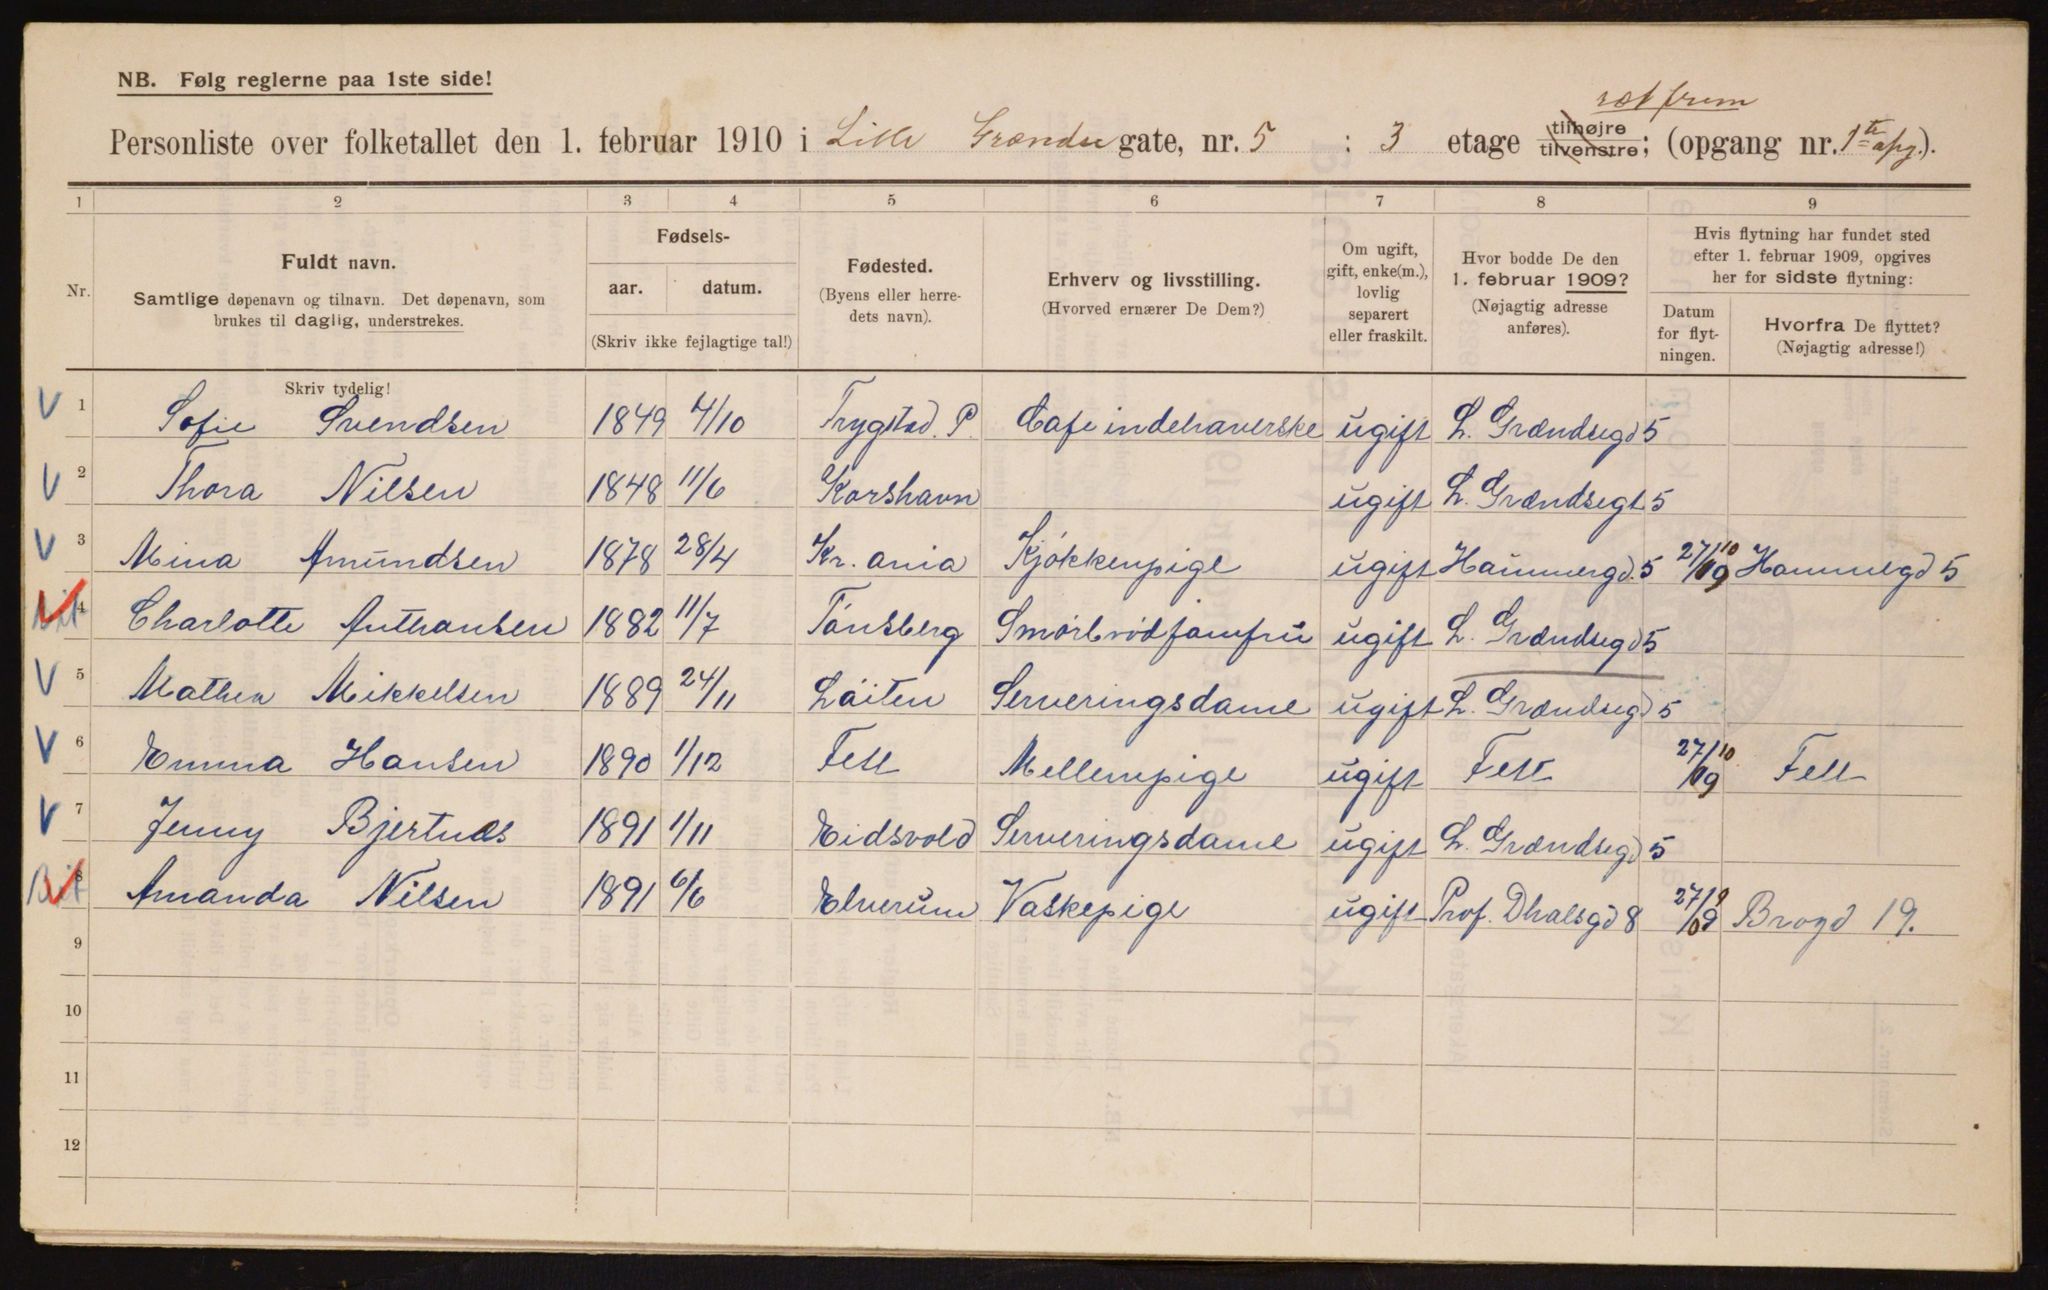 NB. Følg reglerne paa 1ste side!
ret frem
Personliste over folketallet den 1. februar 1910 i Lille Grændse gate, nr. 5 : 3 etage tilhøjre tilvenstre; (opgang nr. 1ste opg.).
1 2 3 4 5 6 7 8 9
Nr.
Fuldt navn.
Samtlige døpenavn og tilnavn. Det døpenavn, som
brukes til daglig, understrekes.
Skriv tydelig!
Fødsels-
aar. datum.
(Skriv ikke fejlagtige tal!)
Fødested.
(Byens eller herre-
dets navn).
Erhverv og livsstilling.
(Hvorved ernærer De Dem?)
Om ugift,
gift, enke(m.),
lovlig
separert
eller fraskilt.
Hvor bodde De den
1. februar 1909?
(Nøjagtig adresse
anføres).
Hvis flytning har fundet sted
efter 1. februar 1909, opgives
her for sidste flytning:
Datum
for flyt-
ningen.
Hvorfra De flyttet?
(Nøjagtig adresse!)
V 1 Sofie Svendsen 1849 4/10 Trygstad. P. Cafeindehaverske ugift L. Grændsegd 5
V 2 Thora Nilsen 1848 11/6 Korshavn ugift L. Grændsegt 5
V 3 Mina Amundsen 1878 28/4 Kr.ania Kjøkkenpige ugift Hammergd. 5 27/10 09 Hammegd 5
4 Charlotte Anthonsen 1882 11/7 Tønsberg Smørbrødjomfru ugift L. Grændsegd 5
V 5 Mathea Mikkelsen 1889 24/11 Løiten Serveringsdame ugift L. Grændsegd 5
V 6 Emma Hansen 1890 1/12 Fett Mellempige ugift Fett 27/10 09 Fett
V 7 Jenny Bjertnæs 1891 1/11 Eidsvold Serveringsdame ugift L. Grændsegd 5
8 Amanda Nilsen 1891 6/6 Elverum Vaskepige ugift Prof. Dhalsgd 8 27/9 09 Brogd 19.
9
10
11
12